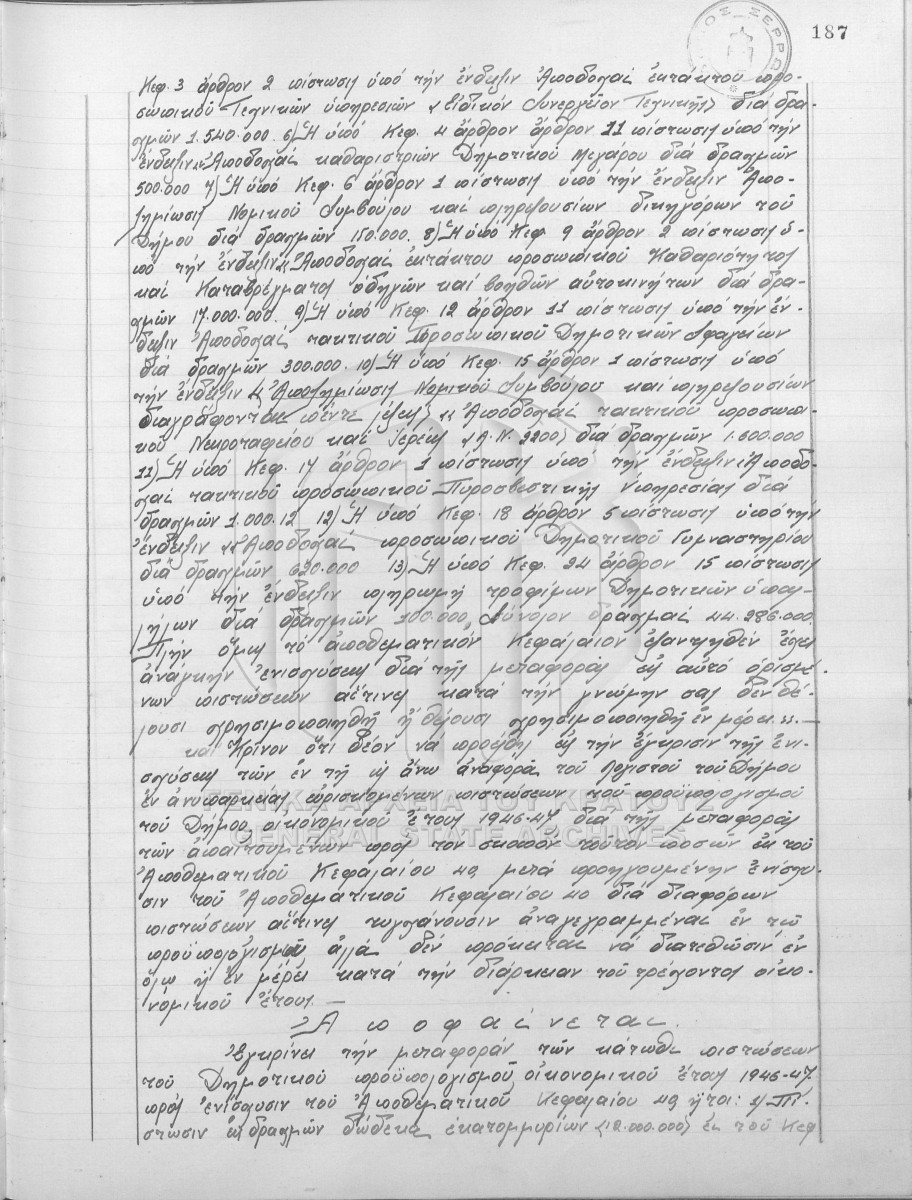 187
ΔΗΜΟΣ ΣΕΡΡΩΝ
Κεφ. 3 ἄρθρον 2 πίστωσις ὑπό τήν ἔνδειξιν Ἀποδοχαί ἐκτάκτου προ-
σωπικοῦ Τεχνικῶν ὑπηρεσιῶν «Εἰδικόν Συνεργεῖον Τεχνικῆς» διά δρα-
χμῶν 1.540.000. 6) Ἡ ὑπό Κεφ. 4 ἄρθρον ἄρθρον 11 πίστωσις ὑπό τήν
ἔνδειξιν «Ἀποδοχαί καθαριστριῶν Δημοτικοῦ Μεγάρου διά δραχμῶν
500.000 7) Ἡ ὑπό Κεφ. 6 ἄρθρον 1 πίστωσις ὑπό τήν ἔνδειξιν Ἀπο-
ζημίωσις Νομικοῦ Συμβούλου καί πληρεξουσίων δικηγόρων τοῦ
Δήμου διά δραχμῶν 150.000. 8) Ἡ ὑπό Κεφ. 9 ἄρθρον 2 πίστωσις ὑ-
πό τήν ἔνδειξιν «Ἀποδοχαί ἐκτάκτου προσωπικοῦ Καθαριότητος
καί Καταβρέγματος ὁδηγῶν καί βοηθῶν αὐτοκινήτων διά δρα-
χμῶν 17.000.000. 9) Ἡ ὑπό Κεφ. 12 ἄρθρον 11 πίστωσις ὑπό τήν ἔν-
δειξιν Ἀποδοχαί τακτικοῦ Προσωπικοῦ Δημοτικῶν Σφαγείων
διά δραχμῶν 300.000. 10) Ἡ ὑπό Κεφ. 15 ἄρθρον 1 πίστωσις ὑπό
τήν ἔνδειξιν «Ἀποζημίωσις Νομικοῦ Συμβούλου καί πληρεξουσίων
διαγράφονται πέντε λέξεις» «Ἀποδοχαί τακτικοῦ προσωπι-
κοῦ Νεκροταφείου καί Ἱερεῖς «Α.Ν. 2200» διά δραχμῶν 1.600.000
11) Ἡ ὑπό Κεφ. 17 ἄρθρον 1 πίστωσις ὑπό τήν ἔνδειξιν «Ἀποδο-
χαί τακτικοῦ προσωπικοῦ Πυροσβεστικῆς Ὑπηρεσίας διά
δραχμῶν 1.000.12 12) Ἡ ὑπό Κεφ. 18 ἄρθρον 5 πίστωσις ὑπό τήν
ἔνδειξιν «Ἀποδοχαί προσωπικοῦ Δημοτικοῦ Γυμναστηρίου
διά δραχμῶν 620.000 13) Ἡ ὑπό Κεφ. 24 ἄρθρον 15 πίστωσις
ὑπό τήν ἔνδειξιν πληρωμή τροφίμων Δημοτικῶν ὑπαλ-
λήλων διά δραχμῶν 100.000, Σύνολον δραχμαί 44.286.000.
Πλήν ὅμως τό ἀποθεματικόν Κεφάλαιον ἐξαντληθέν ἔχει
ἀνάγκην ἐνισχύσεως διά τῆς μεταφορᾶς εἰς αὐτό ὁρισμέ-
νων πιστώσεων αἵτινες κατά τήν γνώμην σας δέν θέ-
λουσι χρησιμοποιηθῆ ἤ θέλουσι χρησιμοποιηθῆ ἐν μέρει.»
καί Κρίνον ὅτι δέον νά προέλθῃ εἰς τήν ἔγκρισιν τῆς ἐνι-
σχύσεως τῶν ἐν τῇ ὡς ἄνω ἀναφορᾶ τοῦ Λογιστοῦ τοῦ Δήμου
ἐν ἀνεπαρκείᾳ εὑρισκομένων πιστώσεων τοῦ προϋπολογισμοῦ
τοῦ Δήμου οἰκονομικοῦ ἔτους 1946-47 διά τῆς μεταφορᾶς
τῶν ἀπαιτουμένων πρός τόν σκοπόν τοῦτον ποσῶν ἐκ τοῦ
Ἀποθεματικοῦ Κεφαλαίου 49 μετά προηγουμένην ἐνίσχυ-
σιν τοῦ Ἀποθεματικοῦ Κεφαλαίου 40 διά διαφόρων
πιστώσεων αἵτινες τυγχάνουσιν ἀναγεγραμμέναι ἐν τῷ
προϋπολογισμῷ ἀλλά δέν πρόκειται νά διατεθῶσιν ἐν
ὅλῳ ἤ ἐν μέρει κατά τήν διάρκειαν τοῦ τρέχοντος οἰκο-
νομικοῦ ἔτους. —
Ἀποφαίνεται
Ἐγκρίνει τήν μεταφοράν τῶν κάτωθι πιστώσεων
τοῦ Δημοτικοῦ προϋπολογισμοῦ οἰκονομικοῦ ἔτους 1946-47
πρός ἐνίσχυσιν τοῦ Ἀποθεματικοῦ Κεφαλαίου 49 ἤτοι: 1) Πί-
στωσιν ἐκ δραχμῶν δώδεκα ἑκατομμυρίων «12.000.000» ἐκ τοῦ Κεφ
ΓΕΝΙΚΑ ΑΡΧΕΙΑ ΤΟΥ ΚΡΑΤΟΥΣ
GENERAL STATE ARCHIVES